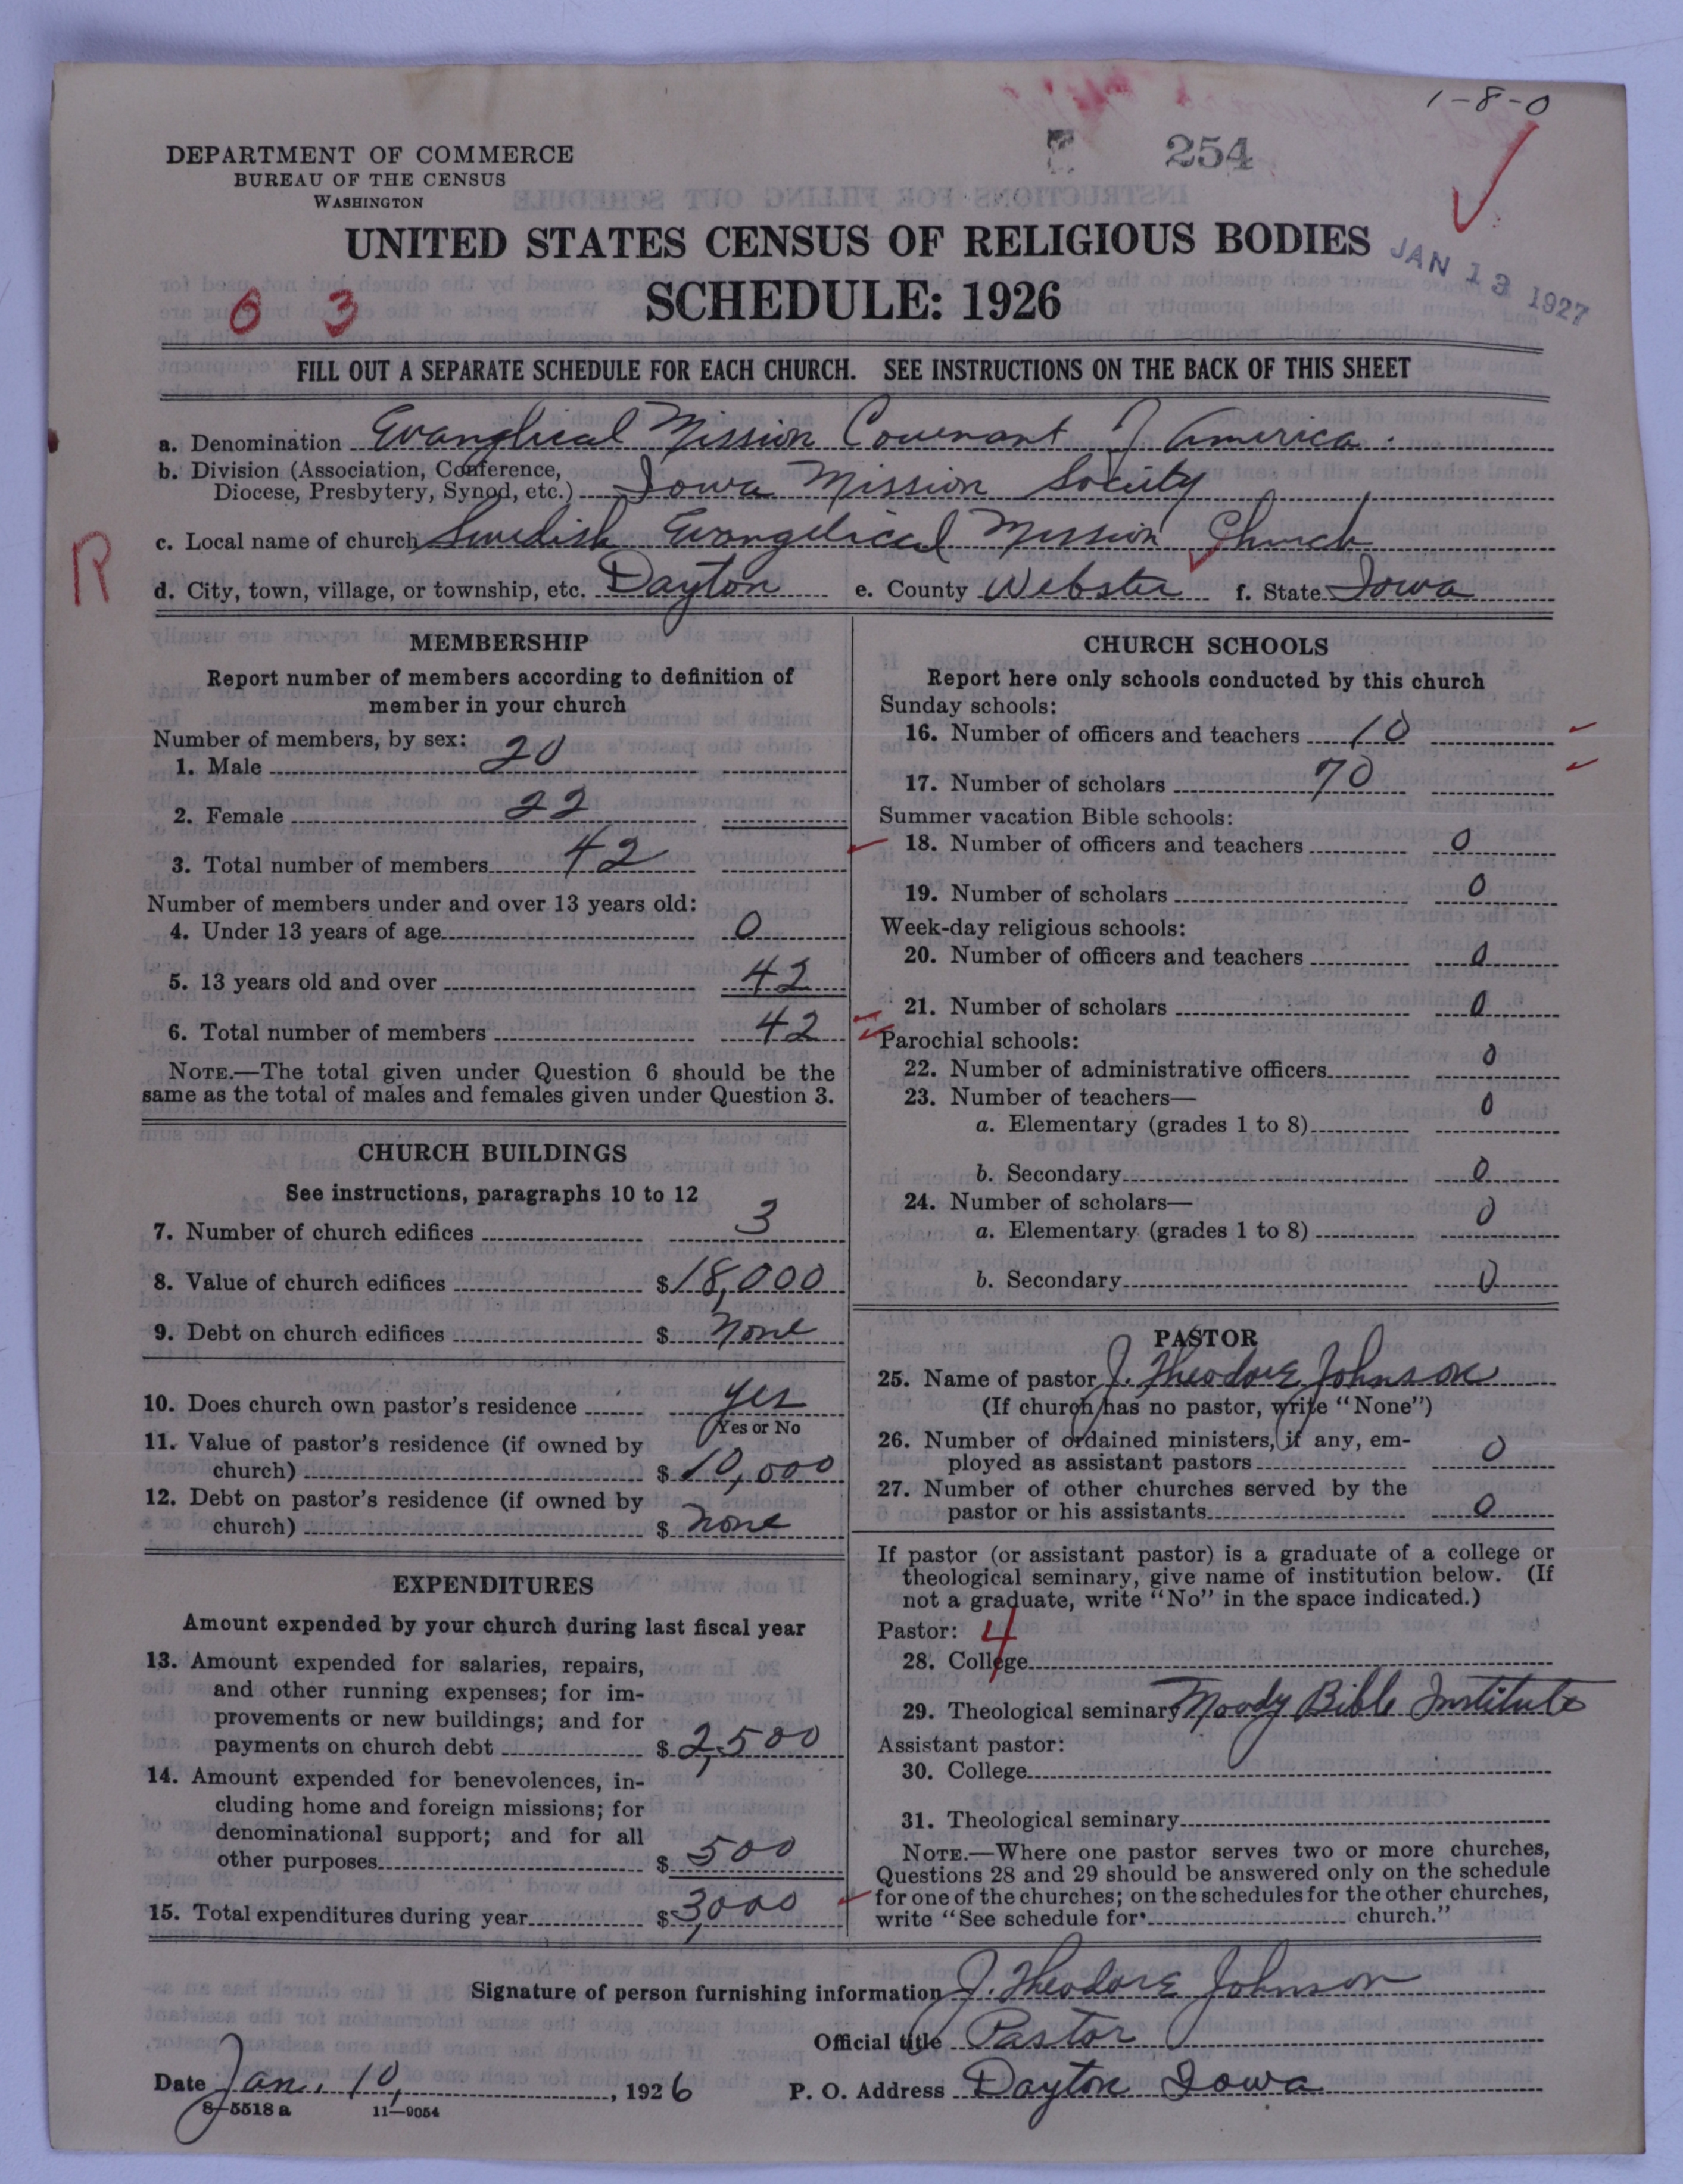 1-8-0
254
DEPARTMENT OF COMMERCE
BUREAU OF THE CENSUS
WASHINGTON
UNITED STATES CENSUS OF RELIGIOUS BODIES
JAN 13 1927
SCHEDULE: 1926
0 3
FILL OUT A SEPARATE SCHEDULE FOR EACH CHURCH. SEE INSTRUCTIONS ON THE BACK OF THIS SHEET
a. Denomination Evanglical Mission Covenant of America.
b. Division (Association, Conference,
Diocese, Presbytery, Synod, etc.) Iowa Mission Society
c. Local name of church Swedish Evangelical Mission Church
R
d. City, town, village, or township, etc. Dayton e. County Webster f. State Iowa
MEMBERSHIP
Report number of members according to definition of
member in your church
Number of members, by sex:
1. Male 20
2. Female 22
3. Total number of members 42
Number of members under and over 13 years old:
4. Under 13 years of age 0
5. 13 years old and over 42
6. Total number of members 42
NOTE.—The total given under Question 6 should be the
same as the total of males and females given under Question 3.
CHURCH BUILDINGS
See instructions, paragraphs 10 to 12
7. Number of church edifices 3
8. Value of church edifices $18,000
9. Debt on church edifices $ none
10. Does church own pastor's residence yes
Yes or No
11. Value of pastor's residence (if owned by
church) $ 10,000
12. Debt on pastor's residence (if owned by
church) $ none
EXPENDITURES
Amount expended by your church during last fiscal year
13. Amount expended for salaries, repairs,
and other running expenses; for im-
provements or new buildings; and for
payments on church debt $ 2,500
14. Amount expended for benevolences, in-
cluding home and foreign missions; for
denominational support; and for all
other purposes $ 500
15. Total expenditures during year $ 3,000
CHURCH SCHOOLS
Report here only schools conducted by this church
Sunday schools:
16. Number of officers and teachers 10
17. Number of scholars 70
Summer vacation Bible schools:
18. Number of officers and teachers 0
19. Number of scholars 0
Week-day religious schools:
20. Number of officers and teachers 0
21. Number of scholars 0
Parochial schools:
22. Number of administrative officers 0
23. Number of teachers—
a. Elementary (grades 1 to 8) 0
b. Secondary 0
24. Number of scholars—
a. Elementary (grades 1 to 8) 0
b. Secondary 0
PASTOR
25. Name of pastor J. Theodore Johnson
(If church has no pastor, write "None")
26. Number of ordained ministers, if any, em-
ployed as assistant pastors 0
27. Number of other churches served by the
pastor or his assistants 0
If pastor (or assistant pastor) is a graduate of a college or
theological seminary, give name of institution below. (If
not a graduate, write "No" in the space indicated.)
Pastor: 4
28. College
29. Theological seminary Moody Bible Institute
Assistant pastor:
30. College
31. Theological seminary
NOTE.—Where one pastor serves two or more churches,
Questions 28 and 29 should be answered only on the schedule
for one of the churches; on the schedules for the other churches,
write "See schedule for church."
Signature of person furnishing information J. Theodore Johnson
Official title Pastor
Date Jan. 10, , 1926 P. O. Address Dayton Iowa
8-5518 a 11-9054